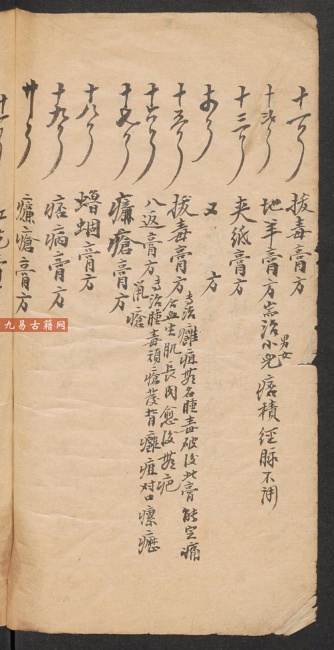 十一 拔毒膏方
十二 地羊膏方 耑治小兒痞積經脉不開
男女
十三 夹紙膏方
十四 又方
十五 拔毒膏方 专治癰疽無名腫毒破後此膏能定痛
生肌長肉愈後無疤
十六 八返膏方 专治腫毒頑瘡發背癰疽对口瘰癧
鼠瘡
十七 臁瘡膏方
十八 蠐螬膏方
十九 痞病膏方
廿 瘡膏方
九易古籍网